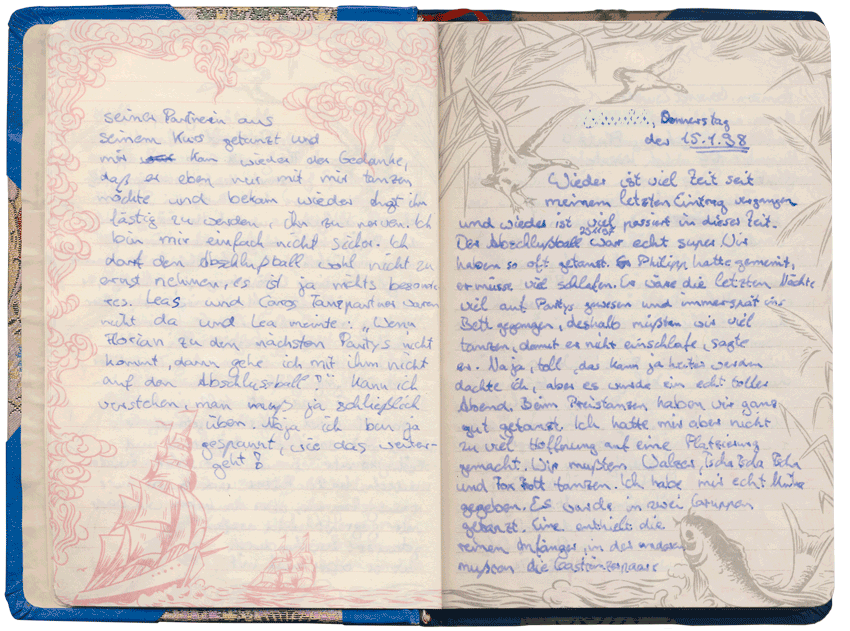 seiner Partnerin aus
seinem Kurs getanzt und
mir kam wieder der Gedanke,
daß er eben nur mit mir tanzen
möchte und bekam wieder Angst ihm
lästig zu werden, ihn zu nerven. Ich
bin mir einfach nicht sicher. Ich
darf den Abschlußball wohl nicht zu
ernst nehmen, es ist ja nichts besonde-
res. Leas und Caros Tanzpartner waren
nicht da und Lea meinte: „Wenn
Florian zu den nächsten Partys nicht
kommt, dann gehe ich mit ihm nicht
auf den Abschlussball!" Kann ich
verstehen, man muß ja schließlich
üben. Naja ich bin ja
gespannt, wie das weiter-
geht!
, Donnerstag
der 15.1.98
Wieder ist viel Zeit seit
meinem letzten Eintrag vergangen
und wieder ist viel passiert in dieser Zeit.
Der Abschlußball war echt super. Wir
haben so oft getanzt. Philipp hatte gemeint,
er müsse viel schlafen. Er wäre die letzten Nächte
viel auf Partys gewesen und immer spät ins
Bett gegangen, deshalb müßten wir viel
tanzen, damit er nicht einschlafe, sagte
er. Na ja, toll, das kann ja heiter werden
dachte ich, aber es wurde ein echt toller
Abend. Beim Preistanzen haben wir ganz
gut getanzt. Ich hatte mir aber nicht
zu viel Hoffnung auf eine Platzierung
gemacht. Wir mußten Walzer, Cha Cha Cha
und Fox Trott tanzen. Ich habe mir echt Mühe
gegeben. Es wurde in zwei Gruppen
getanzt. Eine enthielt die
reinen Anfänger, in der anderen
mußten die Gasttänzerpaare